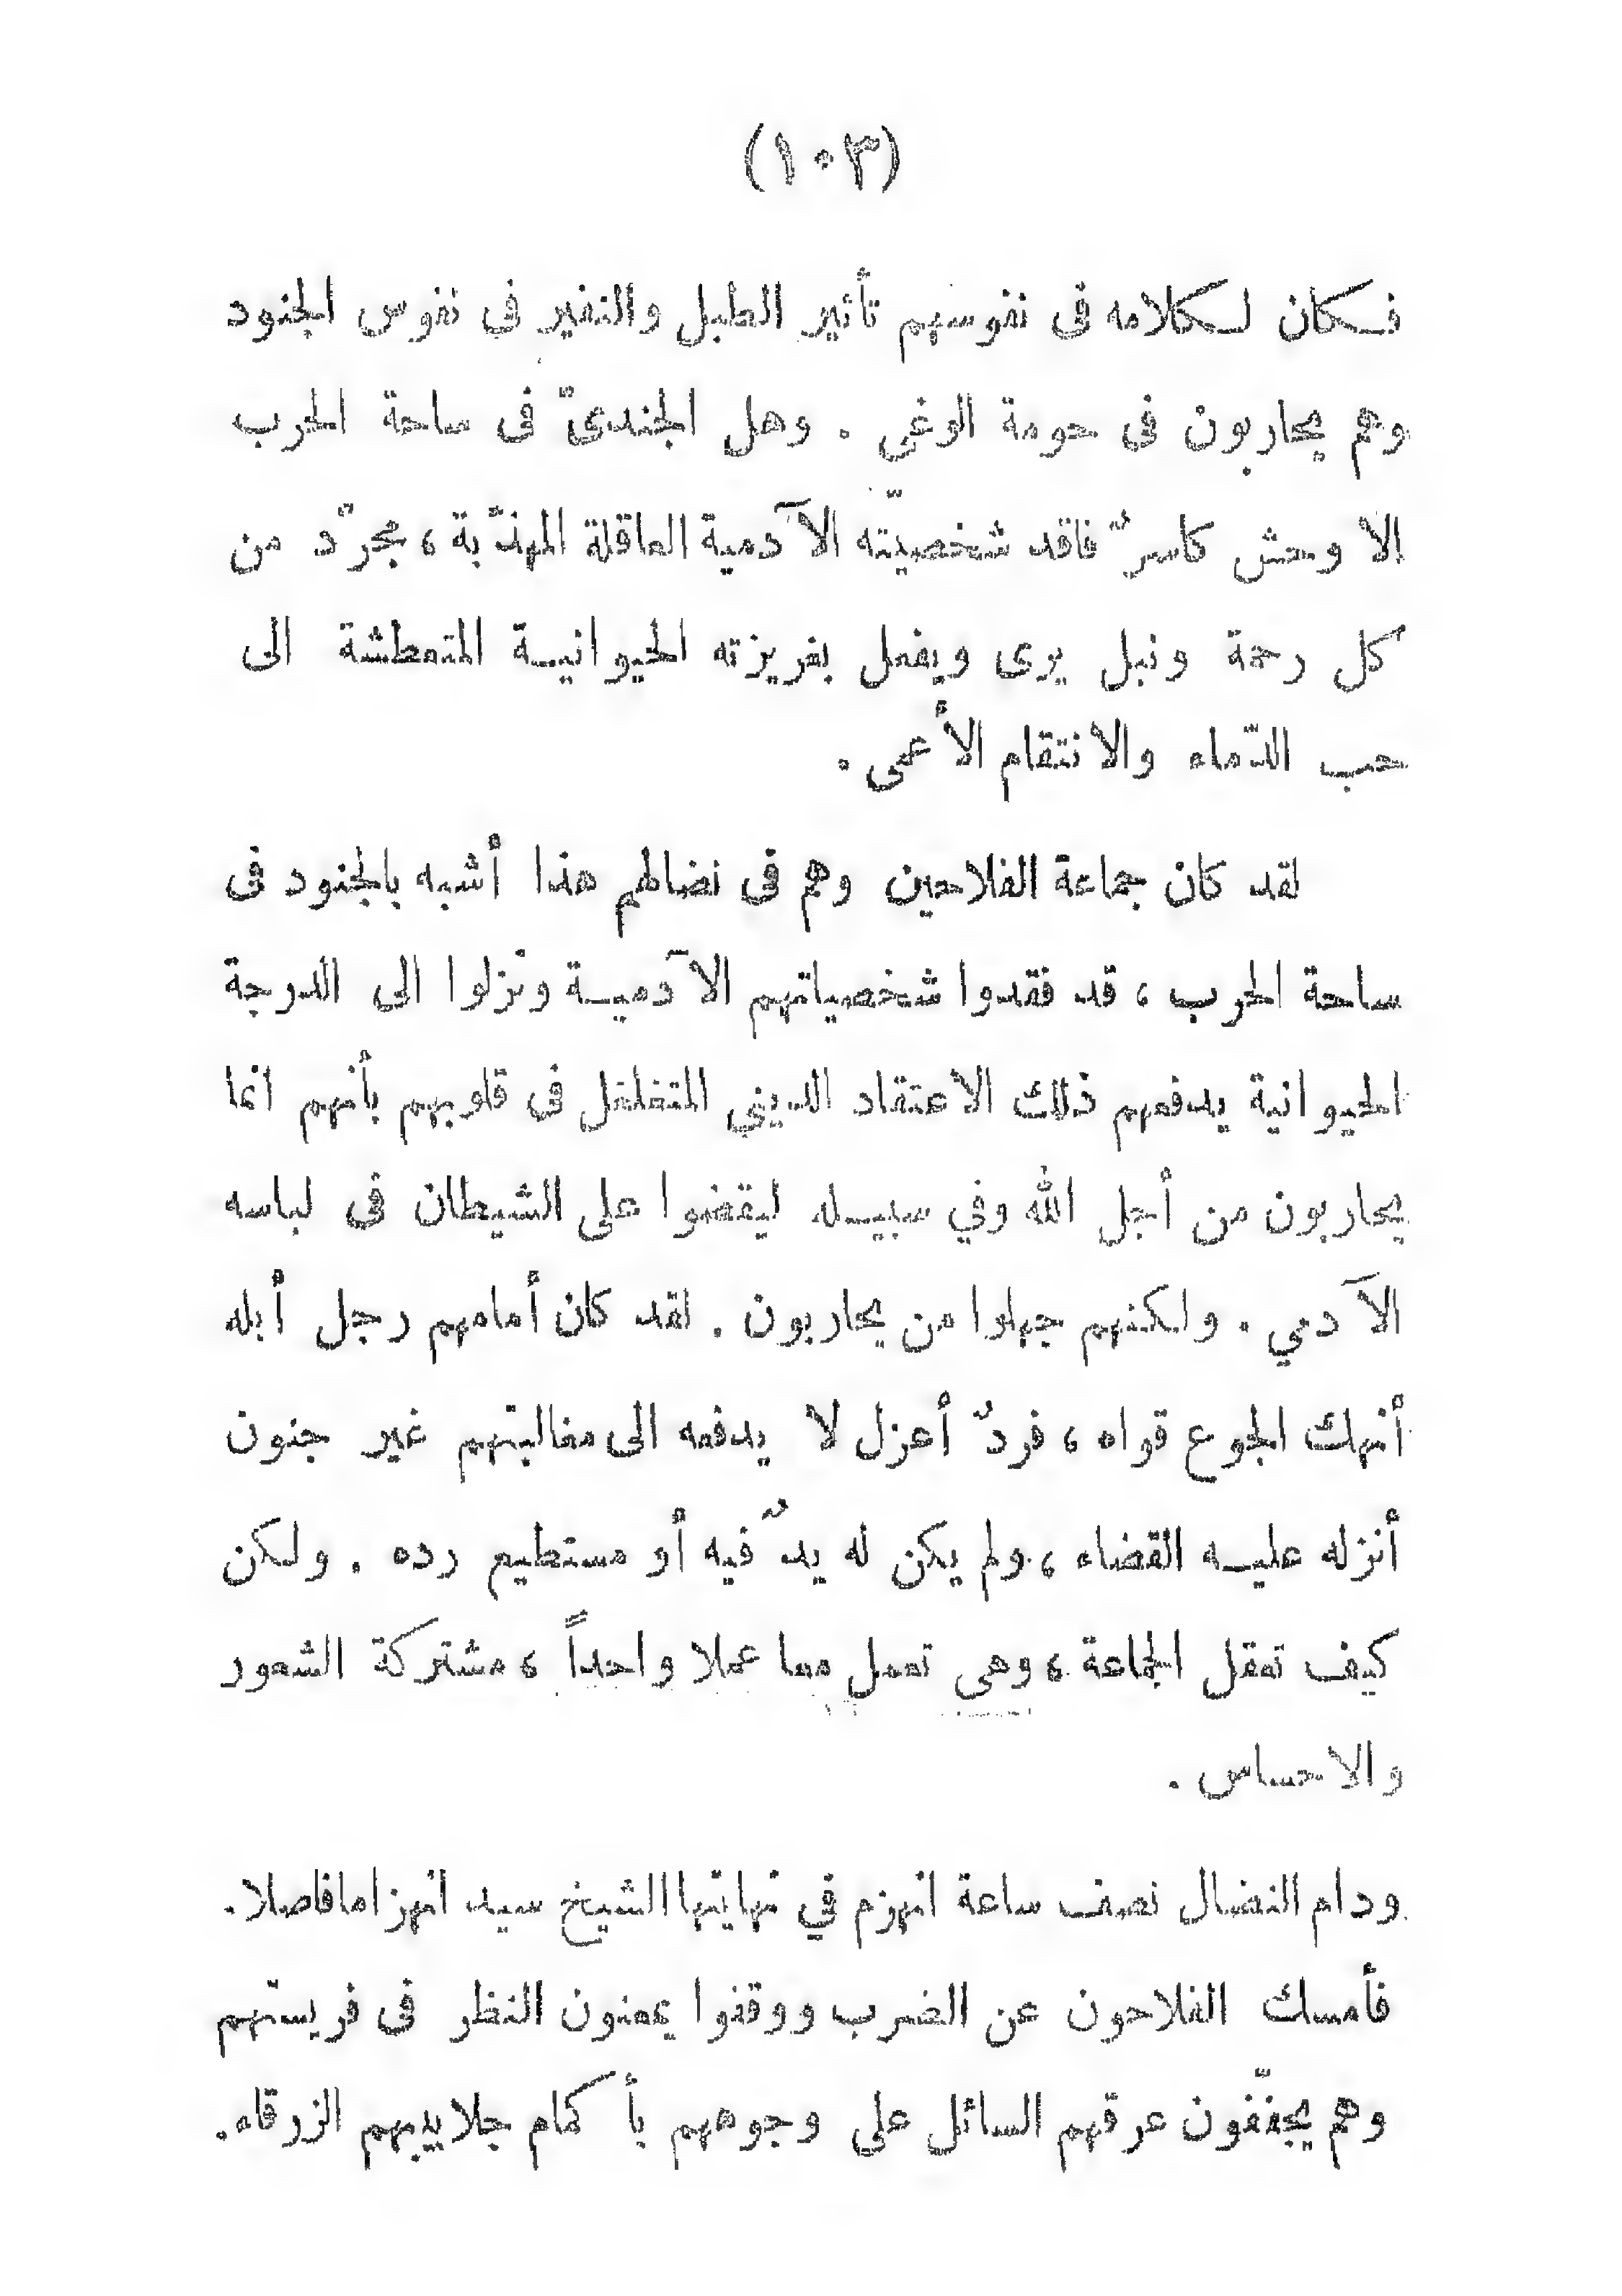 (١٠٣)
فكان لكلامه فى نفوسهم تأثير الطبل والنفير فى نفوس الجنود
وهم يحاربون فى حومة الوغي . وهل الجندىّ فى ساحة الحرب
الا وحش كاسرٌ فاقد شخصيّته الآدمية العاقلة المهذّبة ، مجرّد من
كل رحمة ونبل يرى ويفعل بغريزته الحيوانية المتعطشة الى
حب الدّماء والانتقام الأعمى .
لقد كان جماعة الفلاحين وهم فى نضالهم هذا أشبه بالجنود فى
ساحة الحرب ، قد فقدوا شخصياتهم الآدمية ونزلوا الى الدرجة
الحيوانية يدفعهم ذلك الاعتقاد الديني المتغلغل فى قلوبهم بأنهم انما
يحاربون من أجل الله وفي سبيله ليقضوا على الشيطان فى لباسه
الآدمي . ولكنهم جهلوا من يحاربون . لقد كان أمامهم رجل أبله
أنهك الجوع قواه ، فردٌ أعزل لا يدفعه الى مغالبتهم غير جنون
أنزله عليه القضاء ، ولم يكن له يدٌ فيه أو مستطيع رده . ولكن
كيف تعقل الجماعة ، وهى تعمل معا عملا واحداً ، مشتركة الشعور
والاحساس .
ودام النضال نصف ساعة انهزم في نهايتها الشيخ سيد انهزاما فاصلا.
فأمسك الفلاحون عن الضرب ووقفوا يمعنون النظر فى فريستهم
وهم يجفّفون عرقهم السائل على وجوههم بأكمام جلاليبهم الزرقاء.